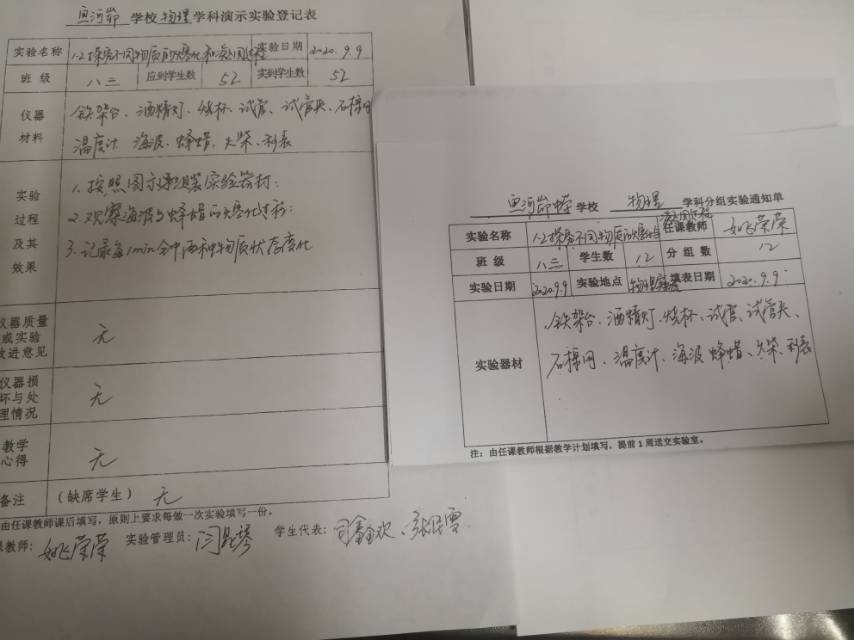 鱼河峁 学校 物理 学科演示实验登记表
实验名称 1.2探究不同物质的熔化和凝固过程 实验日期 2020.9.9
班级 八三 应到学生数 52 实到学生数 52
仪器材料
铁架台、酒精灯、烧杯、试管、试管夹、石棉网
温度计 海波、蜂蜡、火柴、秒表
实验过程及其效果
1.按照图示组装实验器材:
2.观察海波与蜂蜡的熔化过程:
3.记录每1min钟两种物质状态变化
仪器质量或实验改进意见 无
仪器损坏与处理情况 无
教学心得 无
备注 (缺席学生) 无
由任课教师课后填写,原则上要求每做一次实验填写一份。
课教师: 荣荣 实验管理员: 学生代表:
鱼河峁中学 学校 物理 学科分组实验通知单
实验名称 1.2探究不同物质的熔化和凝固过程 任课教师 荣荣
班级 八三 学生数 12 分组数 12
实验日期 2020.9.9 实验地点 物理室 填表日期 2020.9.9.
实验器材
铁架台、酒精灯、烧杯、试管、试管夹、
石棉网、温度计、海波 蜂蜡、火柴、秒表
注:由任课教师根据教学计划填写,提前1周送交实验室。